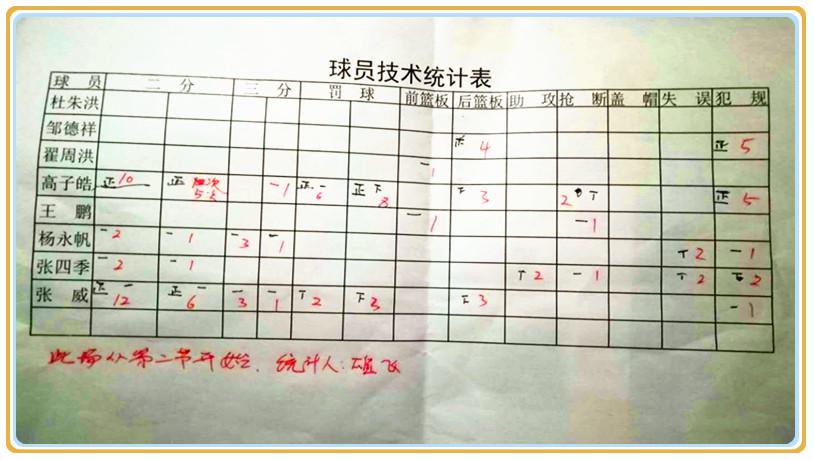 球员技术统计表
球 员 二 分 三 分 罚 球 前篮板 后篮板 助 攻 抢 断 盖 帽 失 误 犯 规
杜朱洪
邹德祥 4 正 5
翟周洪 一 1
高子皓 正 10 正 5 一 1 正一 6 正下 8 下 3 2 正 5
王 鹏 一 1 一 1
杨永帆 一 2 一 1 一 3 一 1 T 2 一 1
张四季 一 2 一 1 T 2 一 1 T 2 2
张 威 正一 12 正一 6 一 3 一 1 T 2 下 3 下 3 一 1
此场从第二节开始. 统计人: